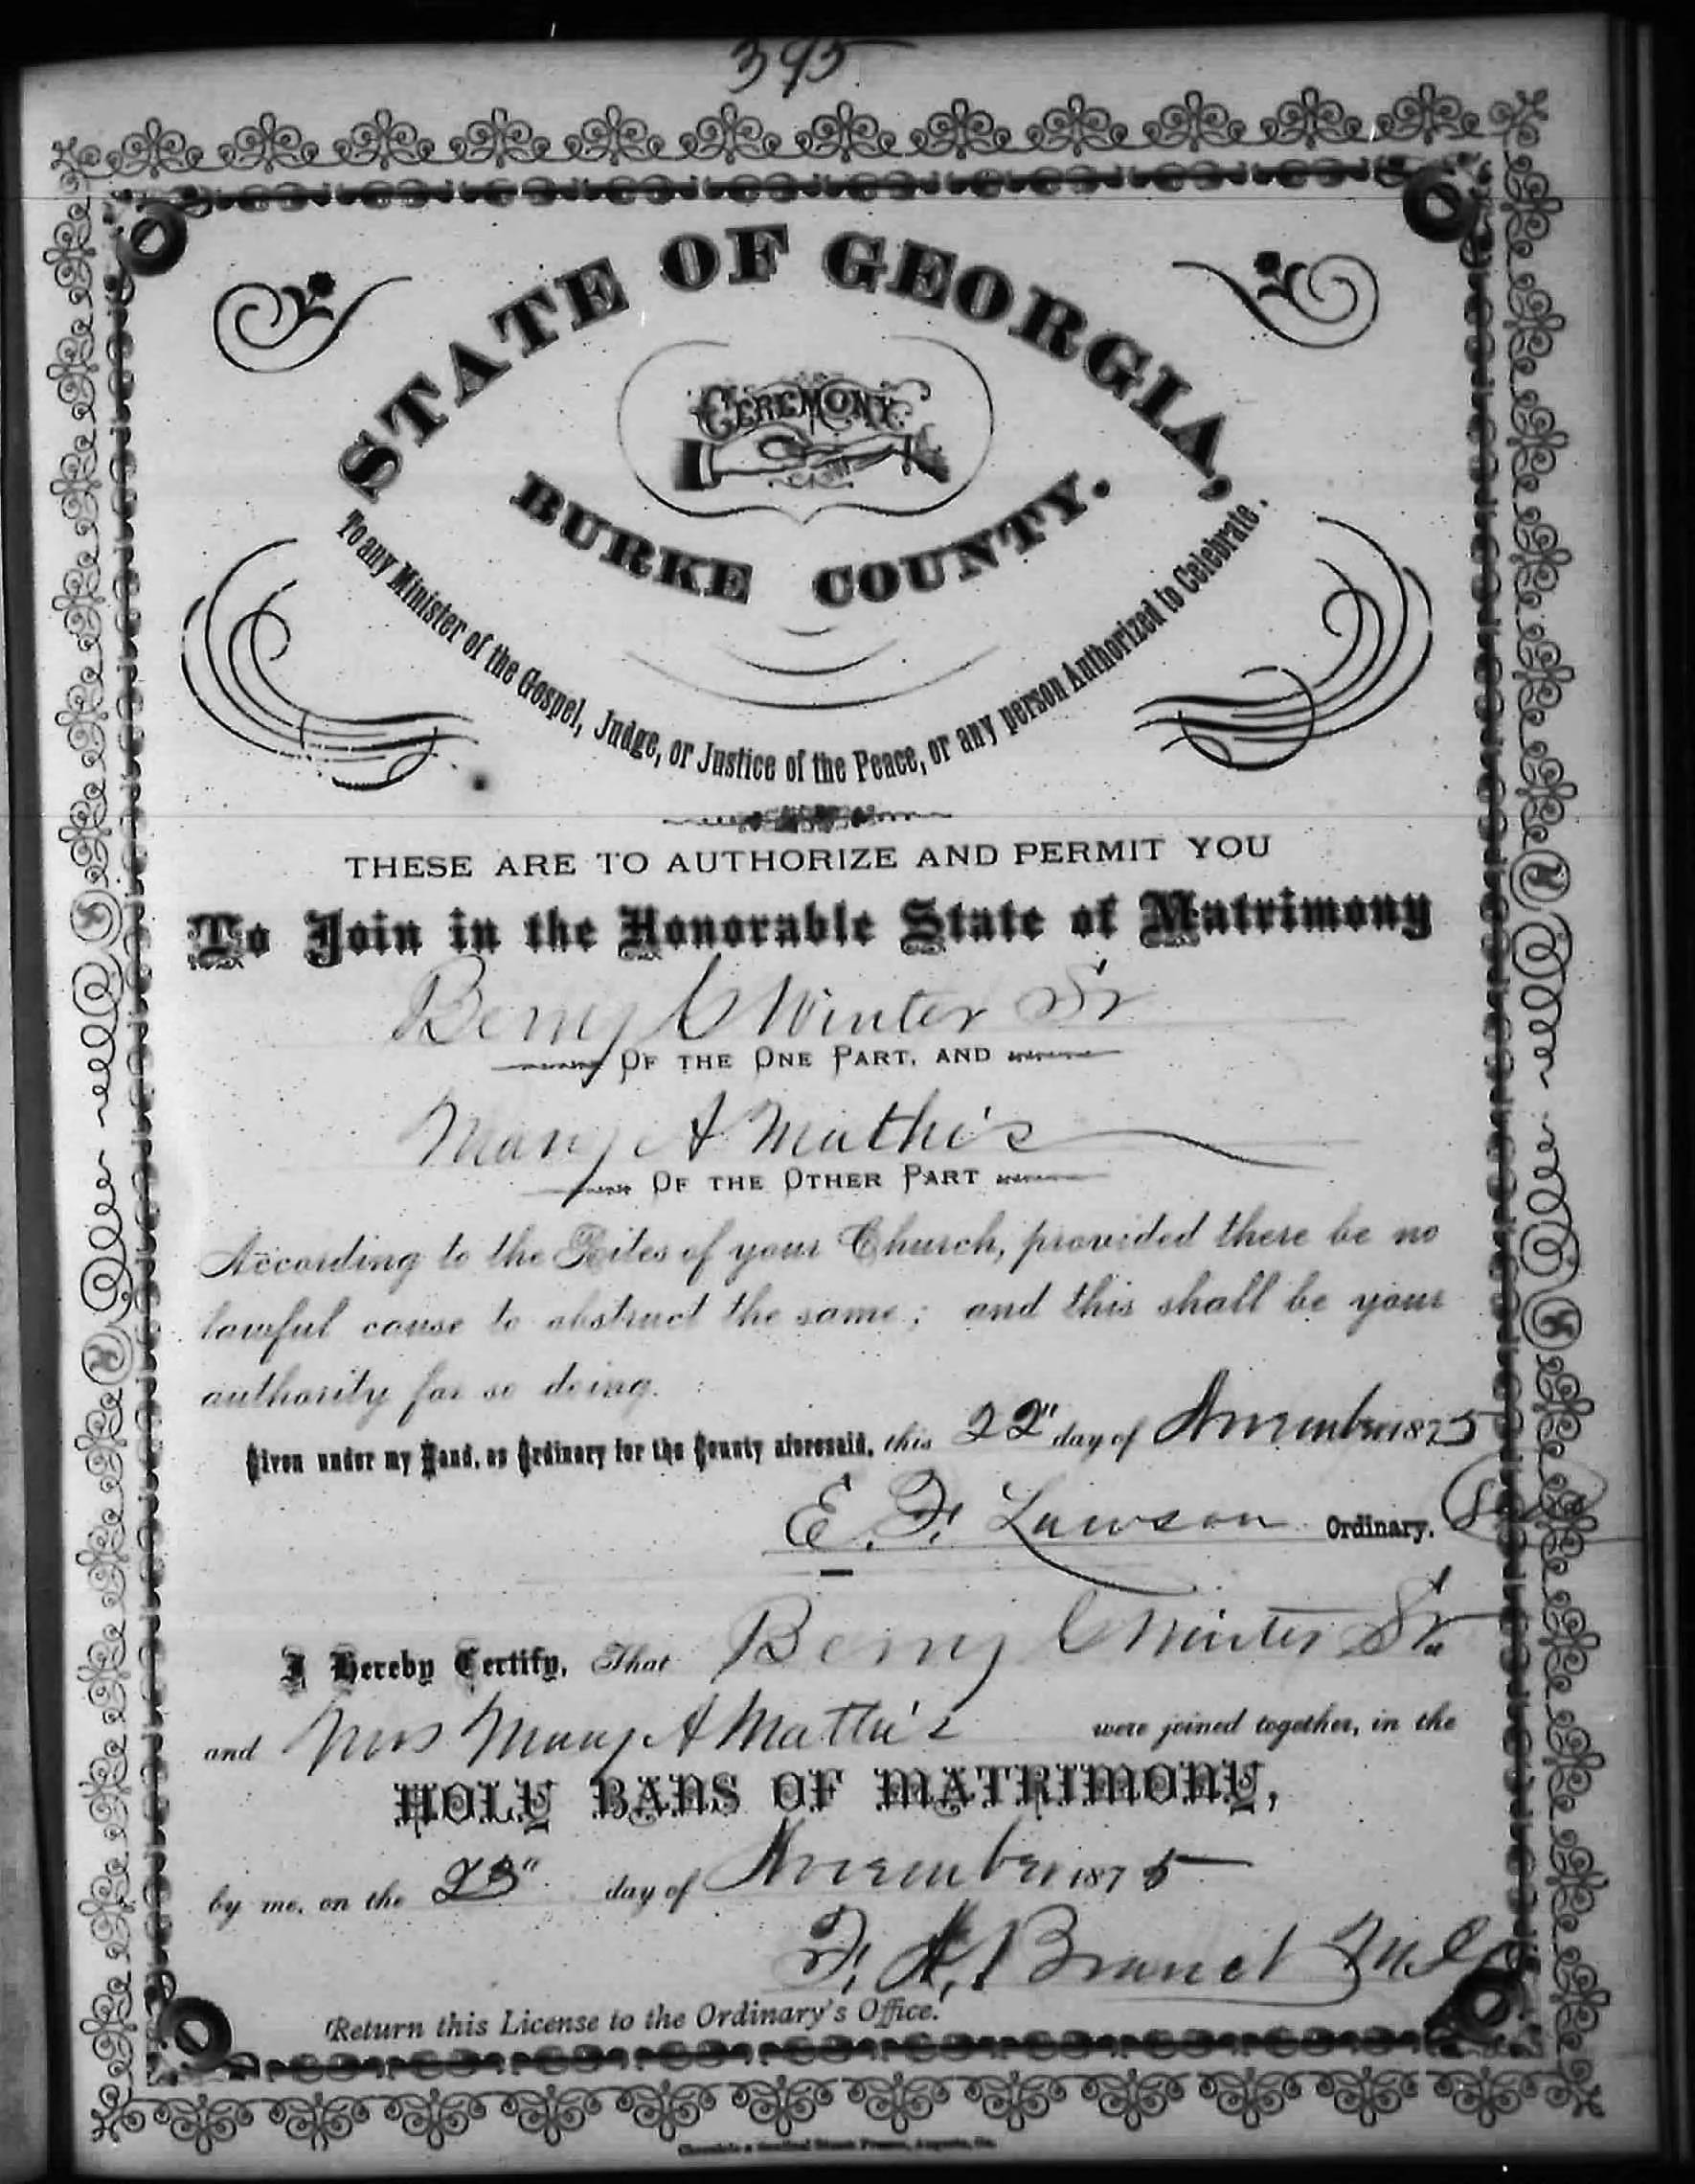 395
STATE OF GEORGIA,
CEREMONY
BURKE COUNTY.
To any Minister of the Gospel, Judge, or Justice of the Peace, or any person Authorized to Celebrate.
THESE ARE TO AUTHORIZE AND PERMIT YOU
To Join in the Honorable State of Matrimony
Berry C Winter Sr
OF THE ONE PART, AND
Mary A Mathis
OF THE OTHER PART
According to the Rites of your Church, provided there be no
lawful cause to obstruct the same; and this shall be your
authority for so doing.
Given under my Hand, as Ordinary for the County aforesaid, this 22" day of November 1875
E. F. Lawson Ordinary.
I Hereby Certify, That Berry C Winter Sr
and Mrs Mary A Mathis were joined together, in the
HOLY BANS OF MATRIMONY,
by me, on the 23" day of November 1875
Return this License to the Ordinary's Office.